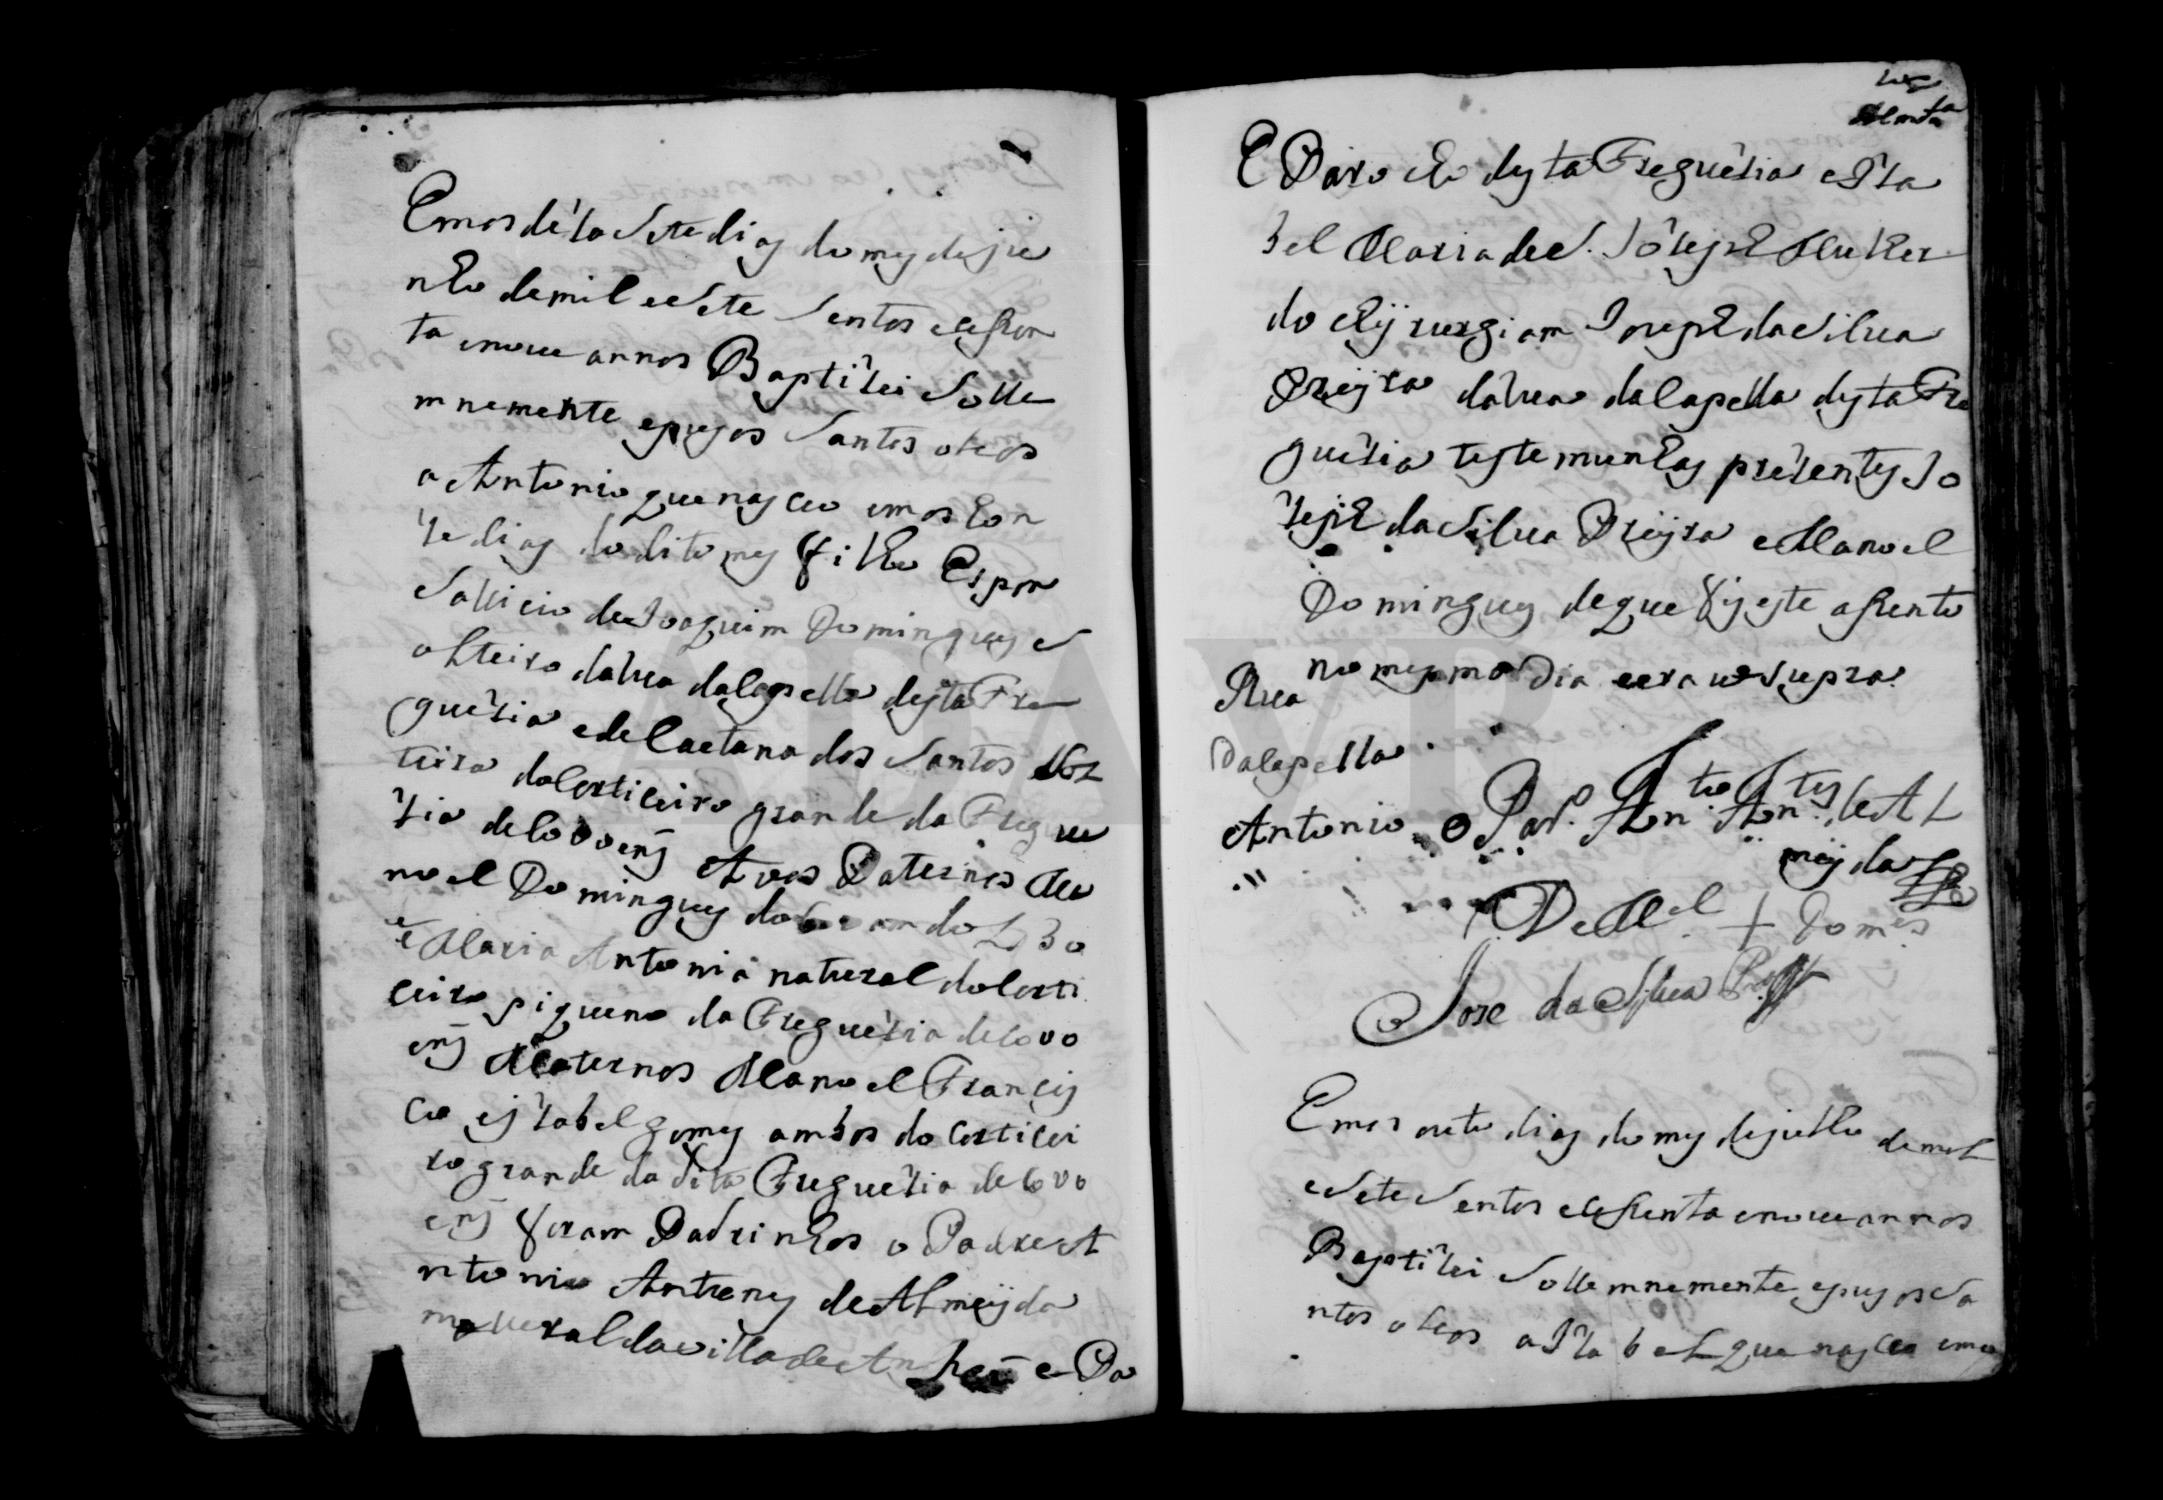 Em os dezasete dias do mes de ju
nho de mil e sete sentos e cesson
ta e nove annos Baptizei Solle
mnemente e pus os santos oleos
a Antonio que nasceo em os hon
ze dias do dito mes filho
de Joaquim Domingues s
olteiro da Rua da Capella desta Fre
guezia e de Caetana dos Santos sol
teira do Corticeiro grande da Fregue
zia de Covoens Avos Paternos Ma
noel Domingues do
e Maria Antonia natural do Corti
ceiro piqueno da Freguezia de Covo
ens Maternos Manoel Francis
co e Izabel gomes ambos do Corticei
ro grande da dita Freguezia de Covo
ens foram Padrinhos o Padre A
ntonio Antunes de Almeijda
natural da villa de e Pa
E Parocho desta Freguezia e Iza
bel Maria de S. Jozeph Mulher
do chijrurgiam Joseph da Silva
Preijra da Rua da Capella desta Fre
guezia testemunhas prezentes Jo
zeph da Silva Preijra e Manoel
Domingues de que fis este assento
no mesmo Dia e era ut supra
Rua
da Capella
Antonio
O Par. Anto. Antes. de Al
meijda
De Mel + Domes
Jose da Silva Pra
Em os outo dias do mes de julho de mil
e sete sentos e cessenta e nove annos
Baptizei Sollemnemente e pus os sa
ntos oleos a Izabel que nasceo em os
ADAVR